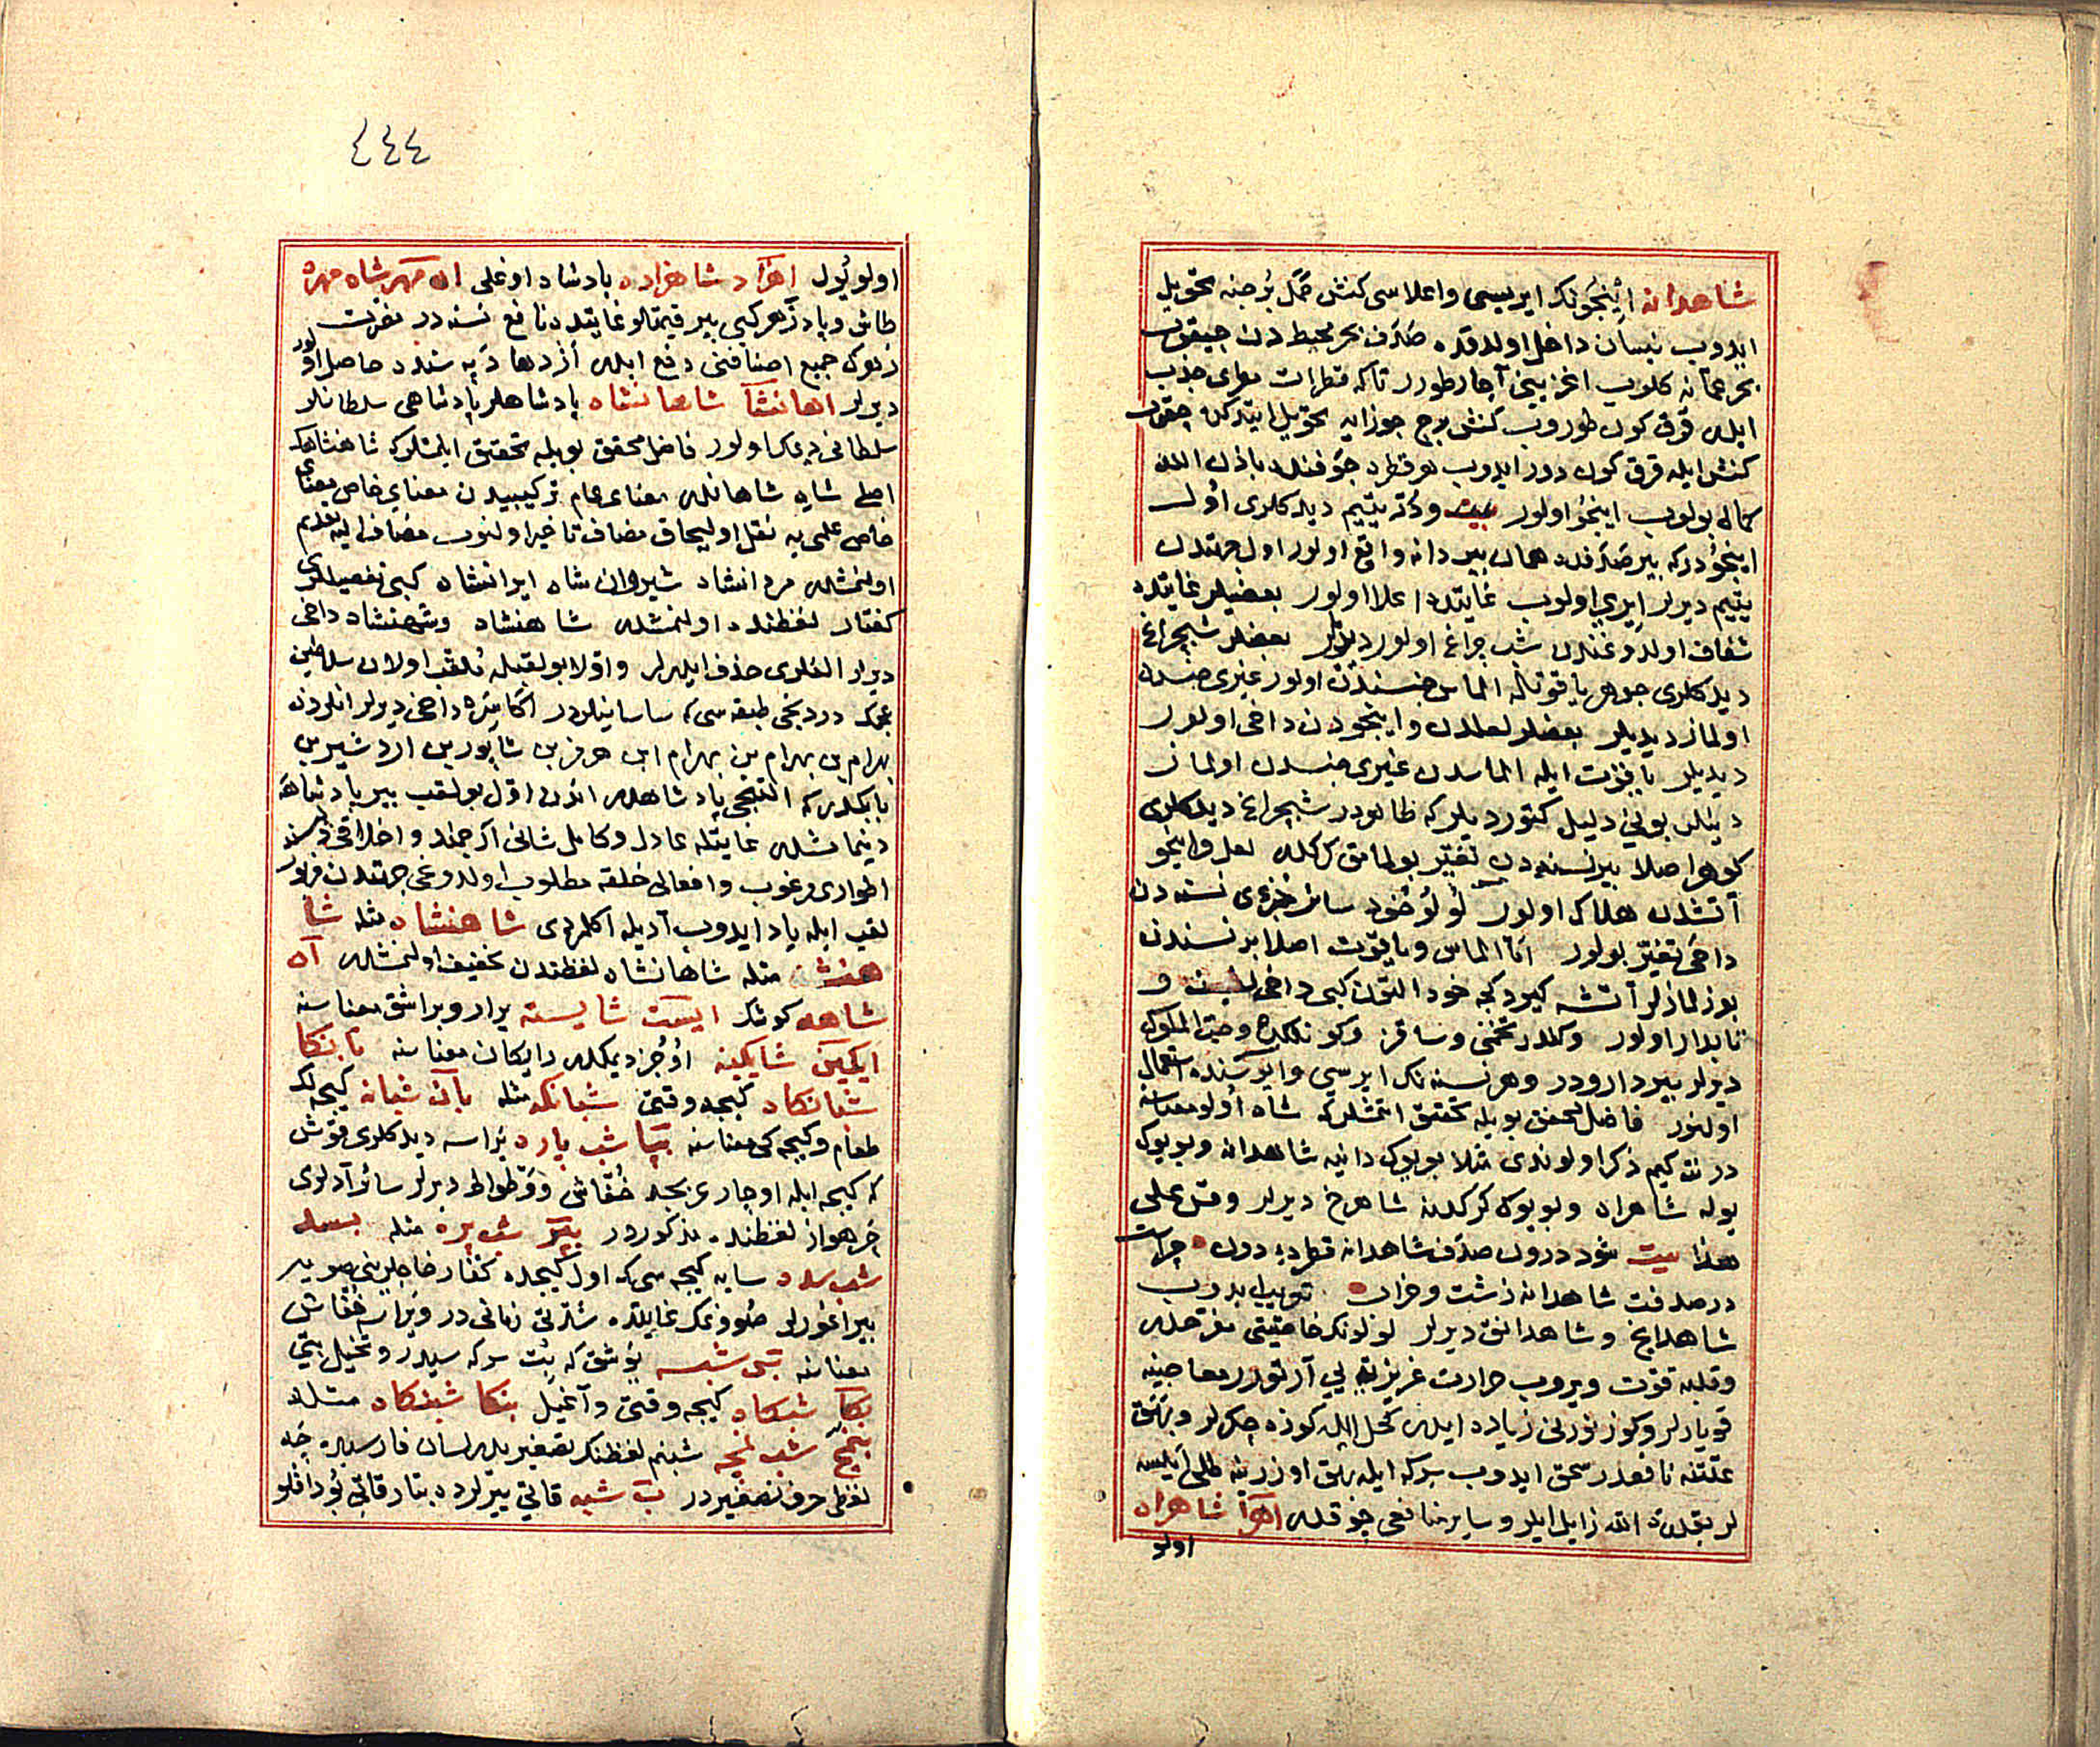 شاهدانه اینجونک ایریسی واعلاسی کنش حمل برجنه تحویل
ایدوب نیسان داخل اولدقده صدف بحر محیط دن چیقوب
بحر عمانه کلوب اغزینی آچار طورر تاکه قطرات هوای جذب
ایله قرق کون طوروب کنش برج جوزایه تحویل ایتدکده چقوب
کنش ایله قرق کون دور ایدوب هر قطره جوفنده باذن الله
کماله بولوب اینجو اولور ودر یتیم دیدکلری اول
اینجودرکه بیر صدفده همان بیر دانه واقع اولور اول جهتدن
یتیم دیرلر ایری اولوب غایتده اعلا اولور بعضیلر غایتده
شفاف اولدوغندن شب چراغ اولور دیدیلر بعضلر شبچراغ
دیدکلری جوهر یاقوتله الماس جنسندن اولور غیری جنسدن
اولماز دیدیلر بعضلر لعلدن واینجودن داخی اولور
دیدیلر یاقوت ایله الماسدن غیری جنسدن اولماز
دینلر بونی دلیل کتوردیلر که ظاهردر شبچراغ دیدکلری
کوهر اصلا بیر نسنه دن تغیر بولمامق کرکدر لعل واینجو
آتشدن هلاک اولور لؤلؤ خود سائر جزءی نسنه دن
داخی تغیر بولور اما الماس ویاقوت اصلا بر نسندن
بوزلمازلر آتشه کیردکجه خود التون کبی داخی و
تابدار اولور وکلدر تخمنی وساقز وحب الملوک
دیرلر بیر دارودر وهر نسنه نک ایریسی وایوسنده استعمال
اولنور فاضل محقق بویله تحقیق اتمشلرکه شاه اولو معناسنه
در نته کیم ذکر اولوندی مثلا بویوک دانیه شاهدانه وبویوک
یوله شاهراه وبویوک کرکدنه شاهرخ دیرلر وقس علی
هذا بیت شود درون صدف شاهدانه قطره دون
در صدفت شاهدانه زشت وخراب
شاهدانج وشاهدانق دیرلر لؤلؤنک خاصیتی مفرحدر
وقلبه قوت ویروب حرارت غریزیه یی آرتورر معاجینه
قویارلر وکوز نورنی زیاده ایلر کحل ایله کوزه چکرلر وبهق
علتنه نافعدر سحق ایدوب سرکه ایله بهق اوزرینه طلی ایلسه
لر بقدرة الله زایل ایلر وسایر منافعی چوقدر اهرا شاهراه
اولو
٤٤٤
اولو یول اهزاد شاهزاده پادشاه اوغلی شاه مهره
طاش وپادزهر کبی بیر قیمتلو غایتده نافع نسنه در
زهرک جمیع اصنافنی دفع ایلر اژدها دپه سنده حاصل اولور
دیرلر اهانشا شاهانشاه پادشاهلر پادشاهی سلطانلر
سلطانی دیمک اولور فاضل محقق بویله تحقیق ایلمشلرکه شاهنشاهک
اصلی شاه شاهانلر معنای عام ترکیبیدن معنای خاص
خاص علمی یه نقل اولیجاق مضاف تاخیر اولنوب مضاف الیه تقدیم
اولنمشلر مردانشاه شیروان شاه ایرانشاه کبی تفصیللری
کفتار لفظنده اولنمشلر شاهنشاه وشهنشاه داخی
دیرلر الفلری حذف ایلرلر واولا بو لقبله ملقب اولان سلاطین
عجمک دردنجی طبقه سی که ساسانیلردر اکاسره داخی دیرلر انلردن
بهرام بن بهرام بن بهرام ابن هرمز بن شاپور بن اردشیر بن
بابکدر که التنجی پادشاهدر اندن اول بو لقب بیر پادشاهه
دینمامشلر غایتله عادل وکامل شانی ارجمند واخلاقی
اطواری مرغوب وافعالی خلقه مطلوب اولدوغی جهتدن
لقب ایله یاد ایدوب آدیله اکلمزدی شاهنشاه مثله شا
هنشه مثله شاهانشاه لفظندن تخفیف اولنمشلر آه
شاهه کوشک ایست شایسته یرار ویراشق معناسنه
ایکین شایکین اوجز دیمکدر رایکان معناسنه بانکا
شبانکاه کیجه وقتی شبانکه مثله بان شبانه کیجه لک
طعام وکیجه کی معناسنه شب پاره یراسه دیدکلری قوش
که کیجه ایله اوچار عربجه خفاش ووطواط دیرلر سائر آدلری
خرهواز لفظنده مذکوردر بپر شب پره مثله بسد
شب سده سایه کیجه سی که اول کیجه ده کفار خاچلرینی صویه
بیراغورلر صووغک غایتده شدتی زمانی در ویراسه خفاش
معناسنه شب یوشق که بت سرکه سیدر وتخیل بتی
بکا شبکاه کیجه وقتی وآغیل بنکا شبنکاه مثله
بنمچ شب نمچه شبنم لفظنک تصغیریدر لسان فارسیده چه
لفظی حرف تصغیر در شبه قانی یتیرلرده بتار بوداقلو